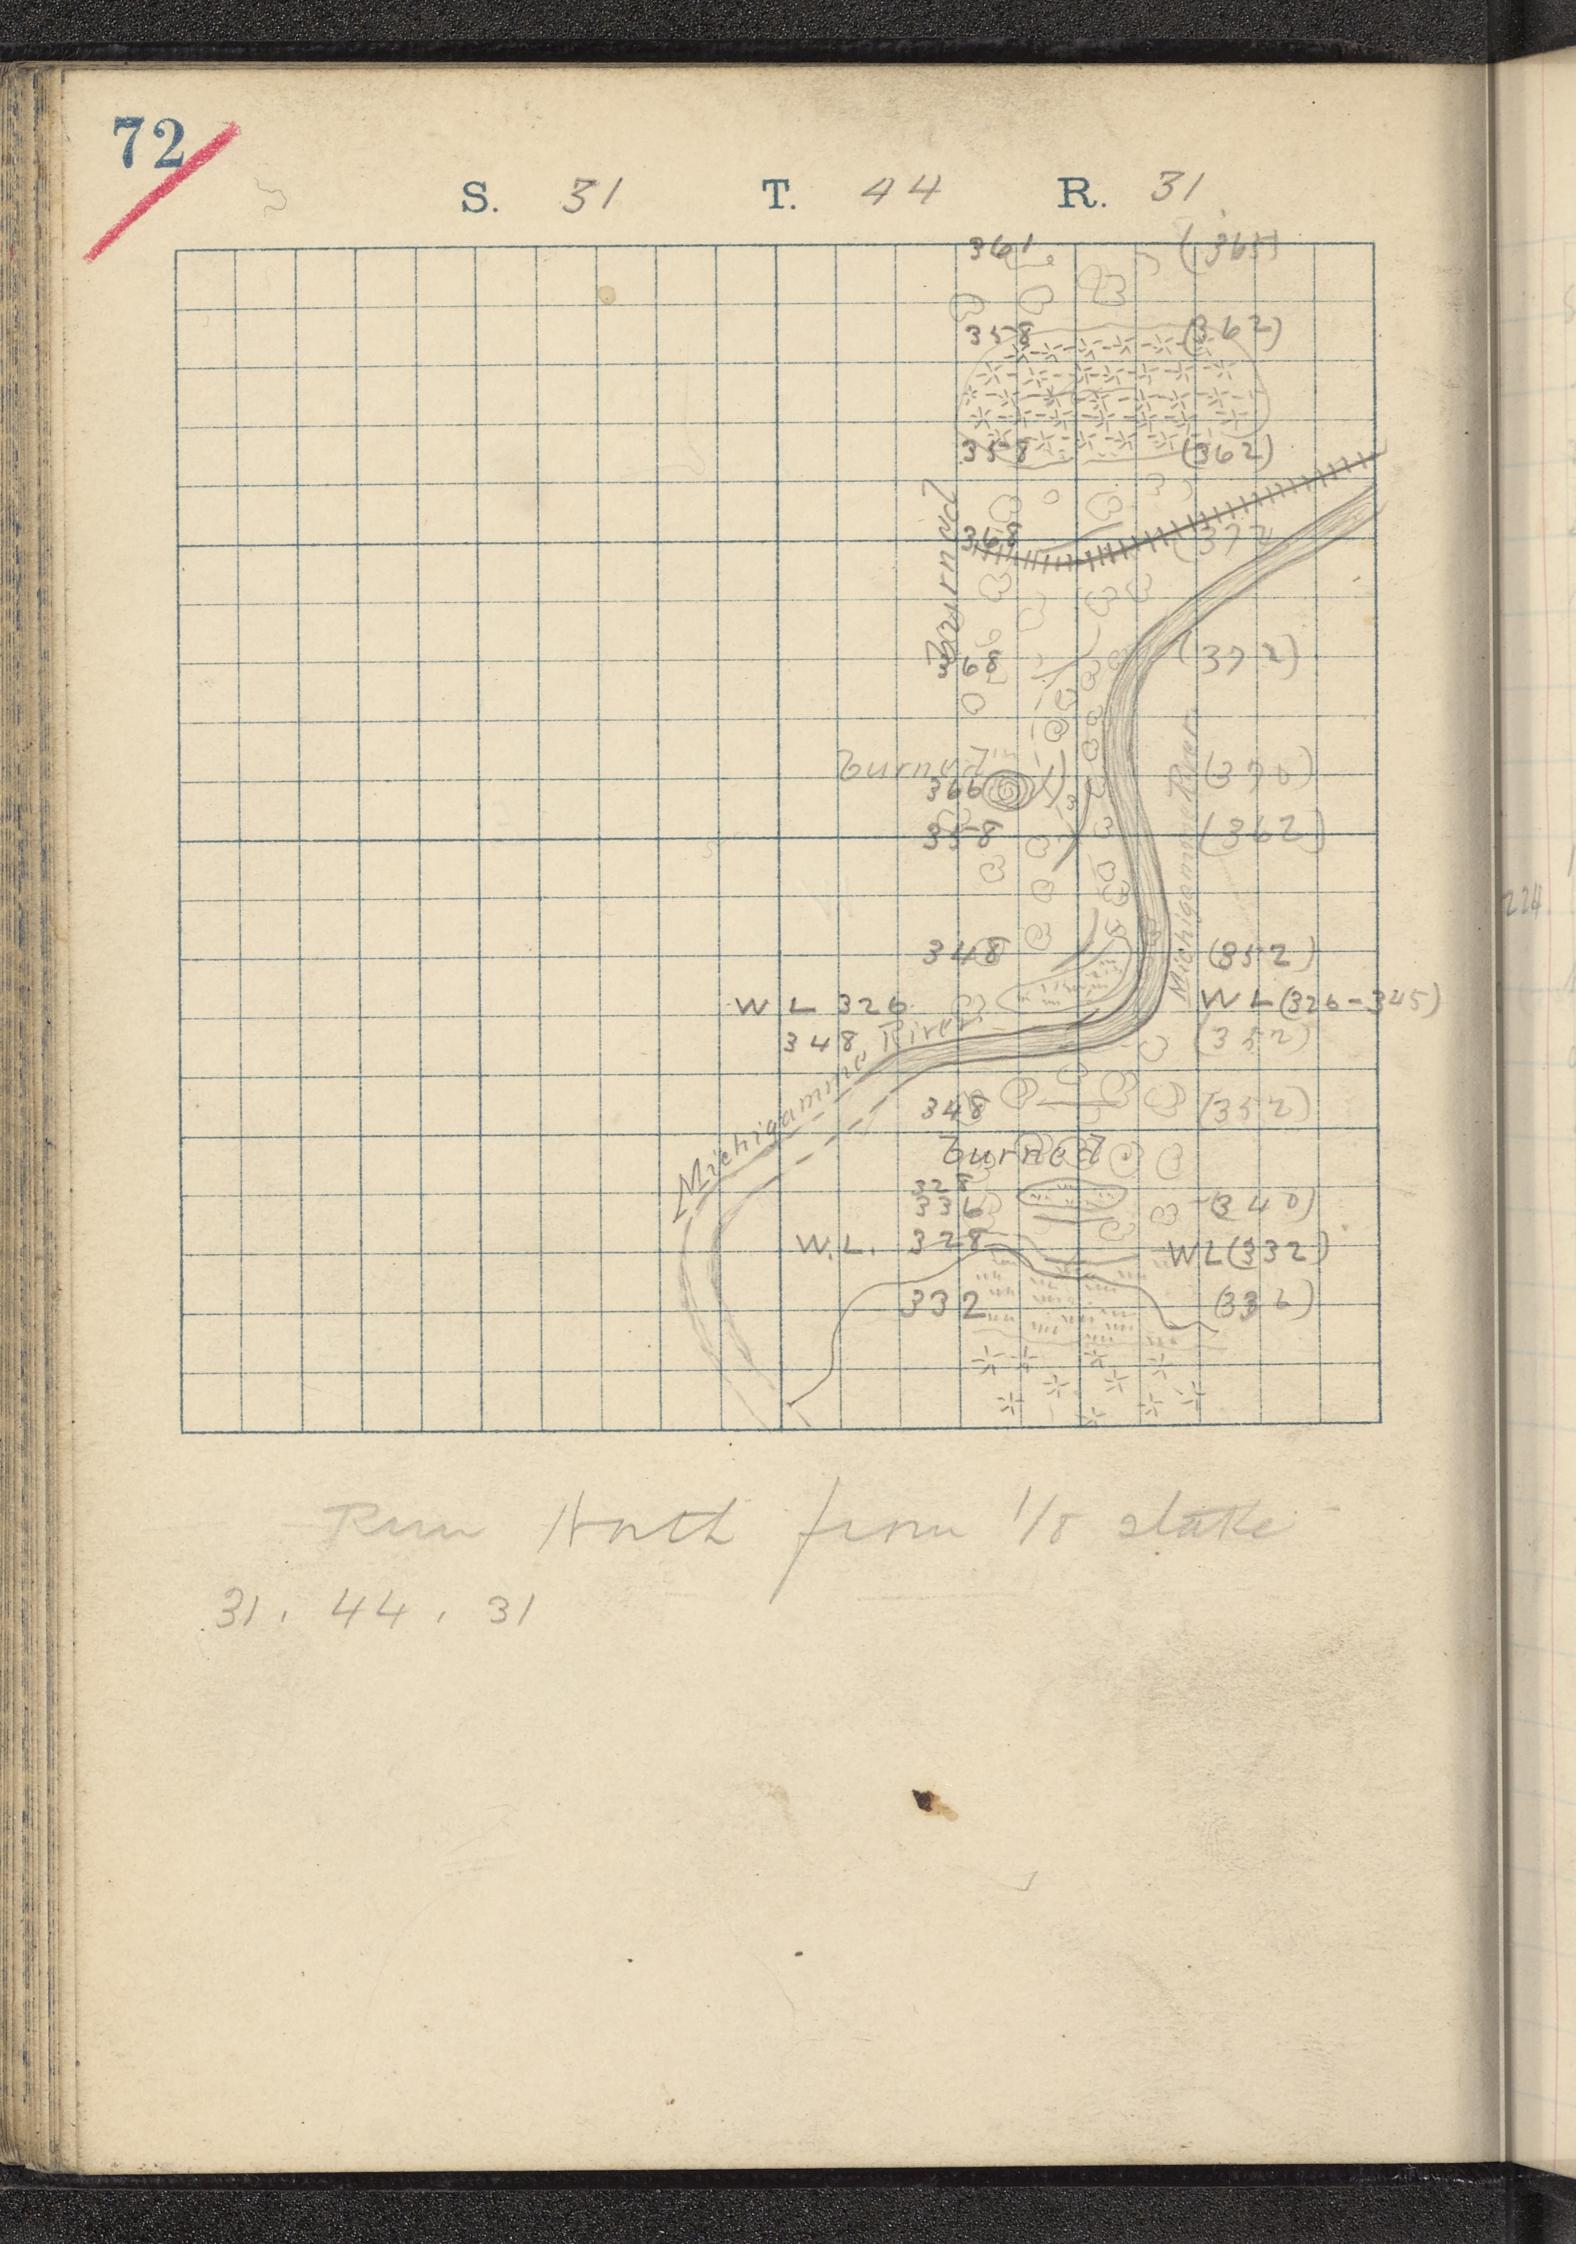 72
S. 31 T. 44 R. 31
361
358 (362)
358 (362)
burned
368 (372
368 (372)
burned
366 (370)
358 (362)
Michigamme River
348 (352)
W L 326 W L (326-345)
348 (352)
Michigamme River
348 (352)
burned
328
336 (340)
W.L. 328 WL (332)
332 (336)
Run North from 1/8 stake
31. 44. 31
224